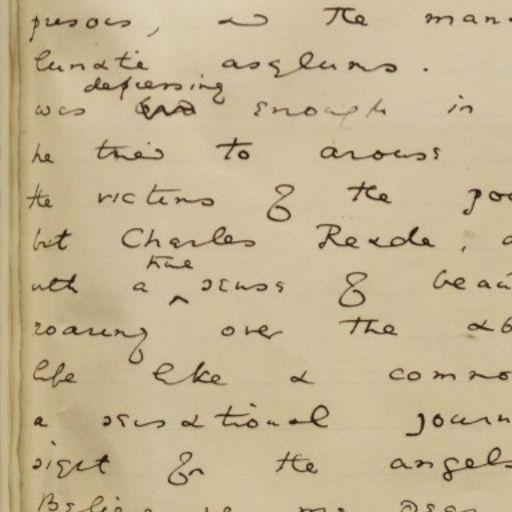 prisons, and the man
lunatic asylums.
depressing
was enough in
he tried to arouse
the victims of the poo
but Charles Reade, a
with a true sense of beau
roaring over the ab
life like a commo
a sensational journ
sight for the angels